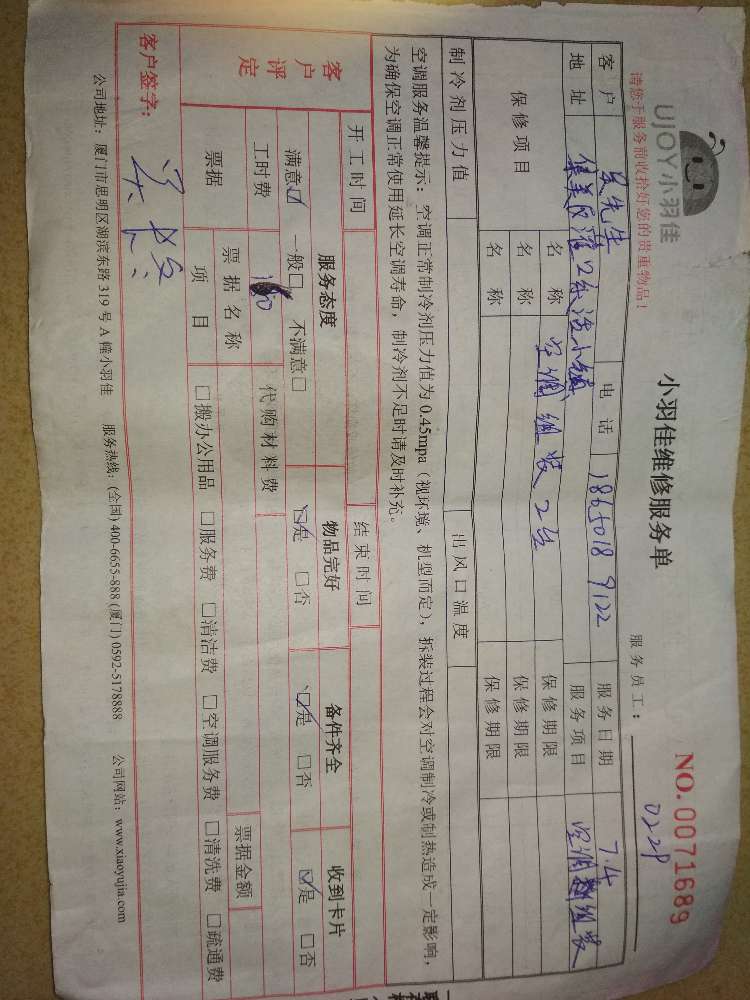 UJOY小羽佳
小羽佳维修服务单
NO.0071689
请您于服务前收拾好您的贵重物品！
服务员工：0229
客户 吴先生 电话 18650189122 服务日期 7.4
地址 集美区灌口东洁小镇 服务项目 空调 组装
保修项目 名称 空调组装2台 保修期限
名称 保修期限
名称 保修期限
制冷剂压力值 出风口温度
空调服务温馨提示：空调正常制冷剂压力值为0.45mpa（视环境、机型而定），拆装过程会对空调制冷或制热造成一定影响，
为确保空调正常使用延长空调寿命，制冷剂不足时请及时补充。
开工时间 结束时间
客户评定 服务态度 物品完好 备件齐全 收到卡片
满意☑ 一般□ 不满意□ ☑是 □否 ☑是 □否 ☑是 □否
工时费 代购材料费
票据 票据名称 票据金额
项目 □搬办公用品 □服务费 □清洁费 □空调服务费 □清洗费 □疏通费
客户签字：
公司地址：厦门市思明区湖滨东路319号A幢小羽佳 服务热线：(全国)400-6655-888 (厦门)0592-5178888 公司网站：www.xiaoyujia.com